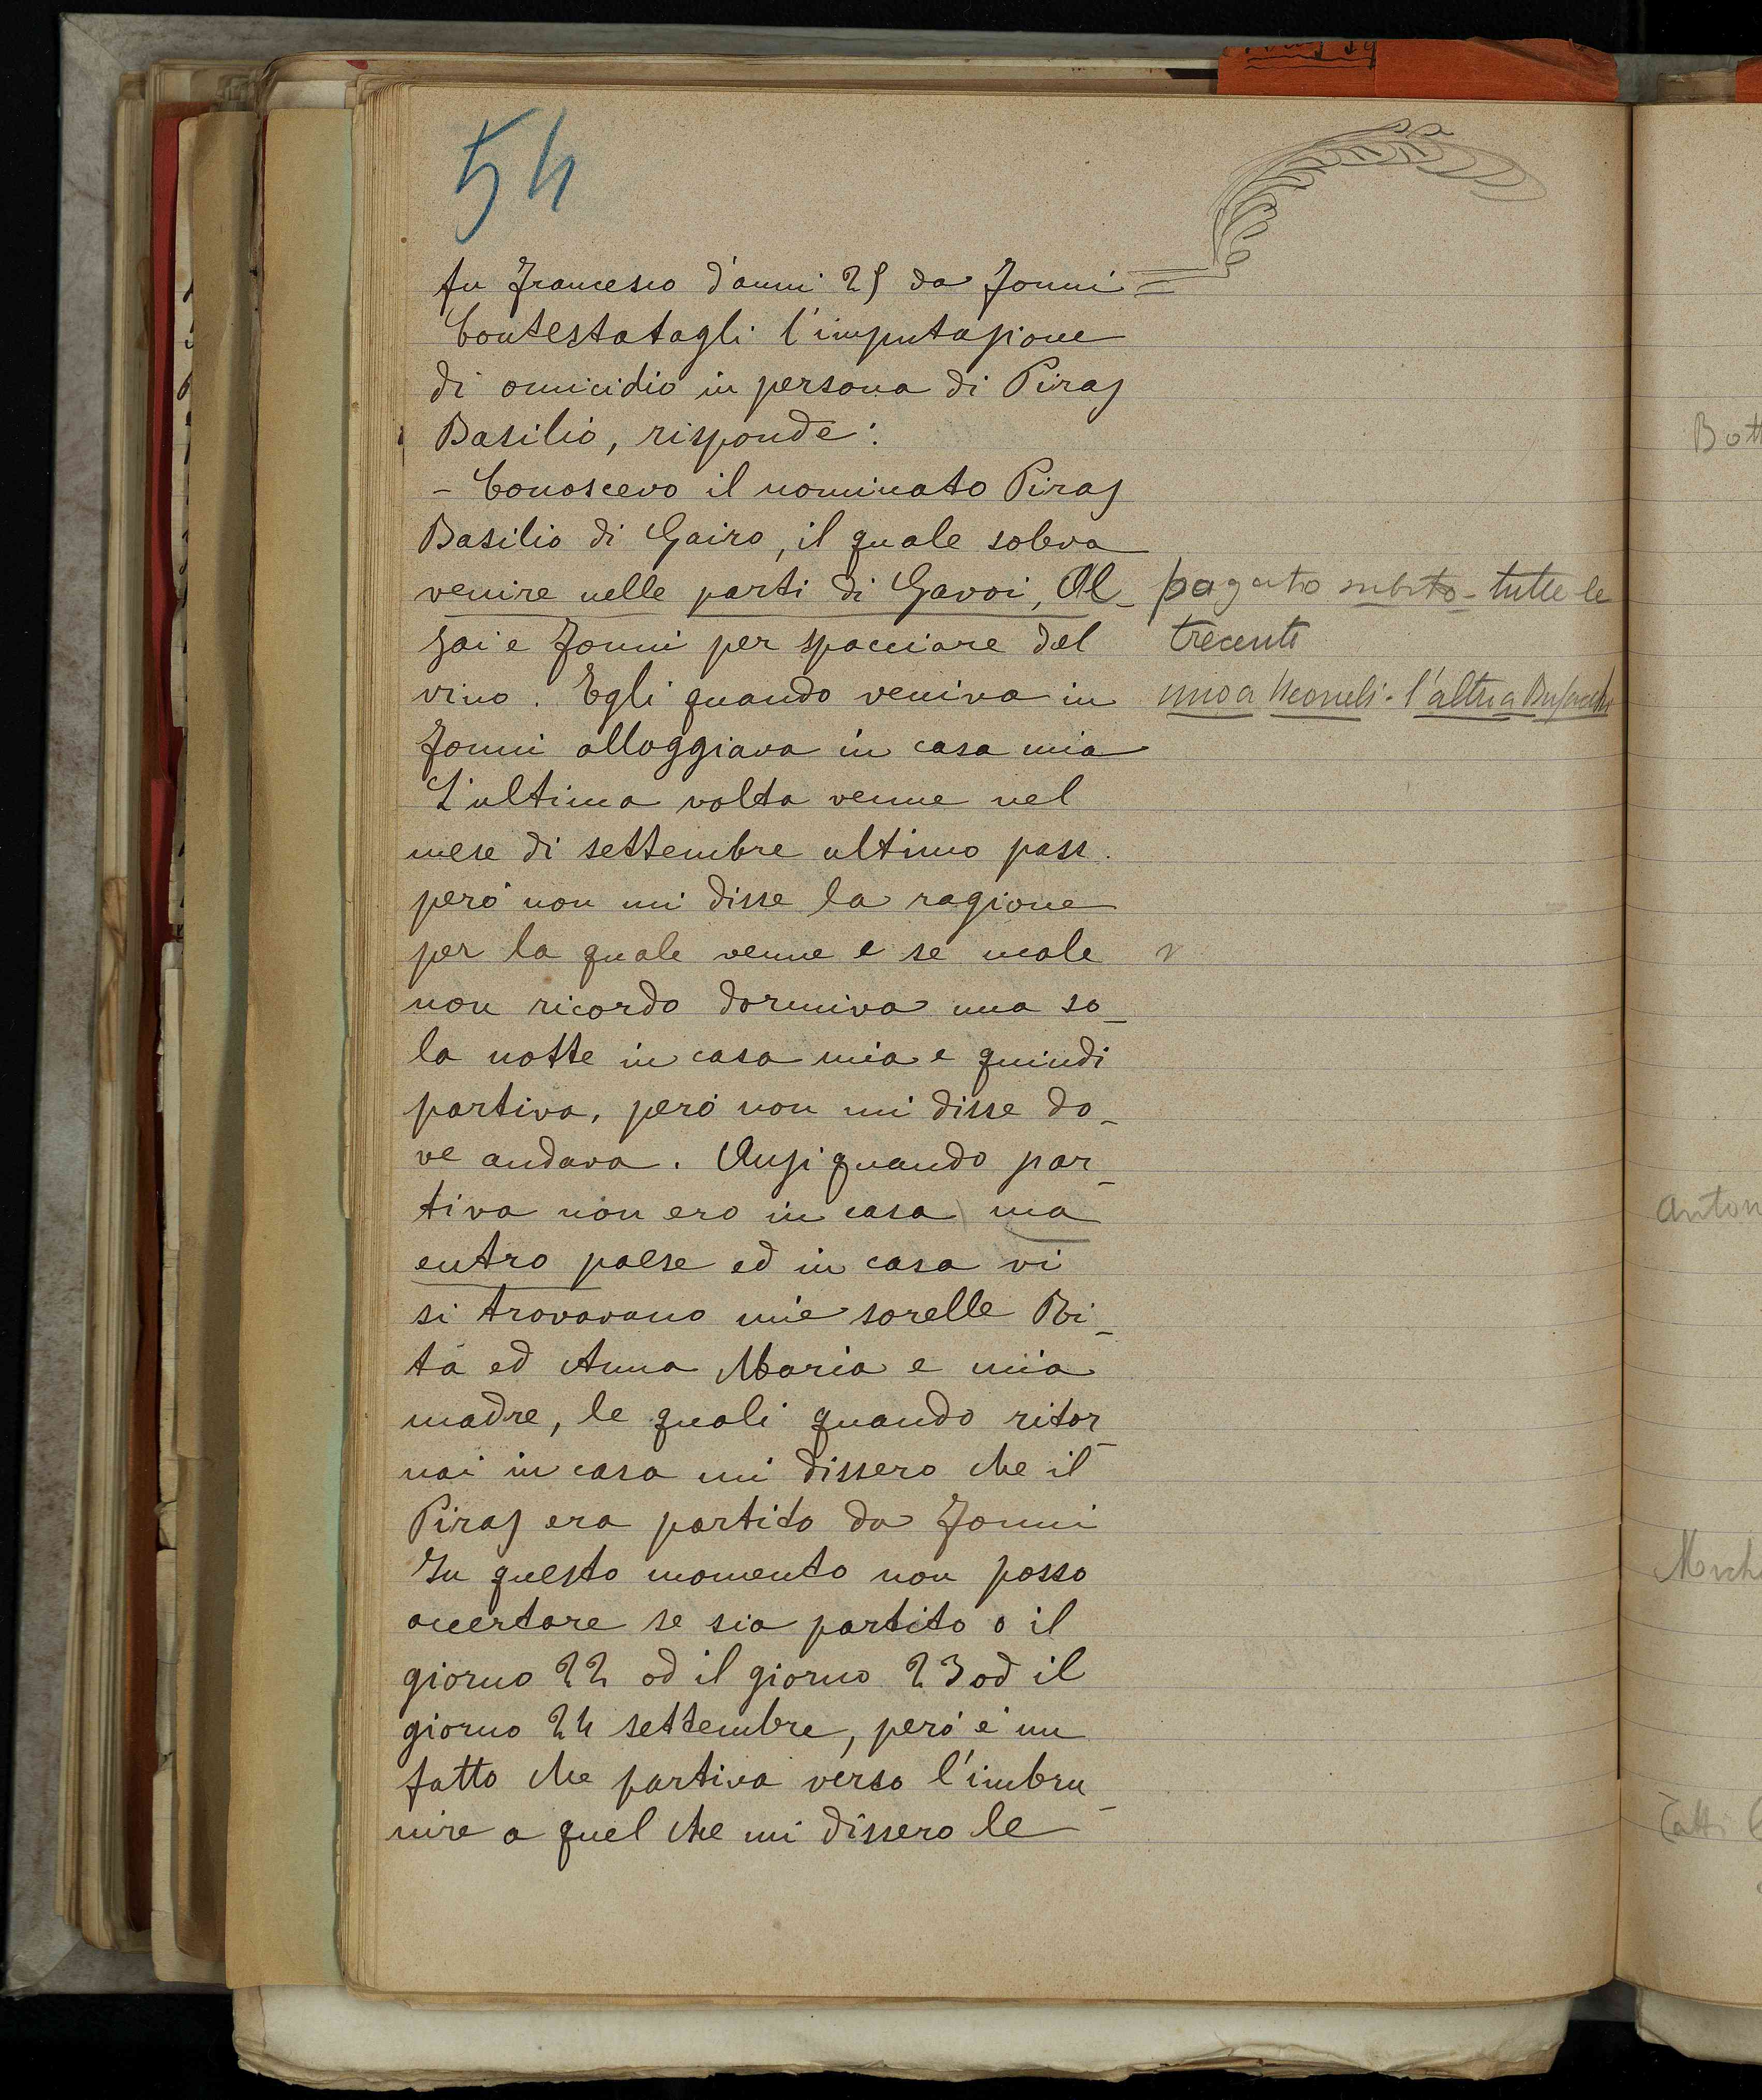 54
fu Francesco d'anni 25 da Fonni =
Contestatagli l'imputazione
di omicidio in persona di Piras
Basilio, risponde:
- Conoscevo il nominato Piras
Basilio di Gairo, il quale soleva
venire nelle parti di Gavoi, Ol-
zai e Fonni per spacciare del
vino. Egli quando veniva in
Fonni alloggiava in casa mia
L'ultima volta venne nel
mese di settembre ultimo pass.
però non mi disse la ragione
per la quale venne e se male
non ricordo dormiva una so-
la notte in casa mia e quindi
partiva, però non mi disse do-
ve andava. Anzi quando par-
tiva non ero in casa ma
entro paese ed in casa vi
si trovavano mie sorelle Ri-
ta ed Anna Maria e mia
madre, le quali quando ritor-
nai in casa mi dissero che il
Piras era partito da Fonni
In questo momento non posso
accertare se sia partito o il
giorno 22 od il giorno 23 od il
giorno 24 settembre, però è un
fatto che partiva verso l'imbru-
nire a quel che mi dissero le
pagato subito - tutte le
trecento
uno a Neoneli - l'altro a
Bott
Anton
Mich
Tatti